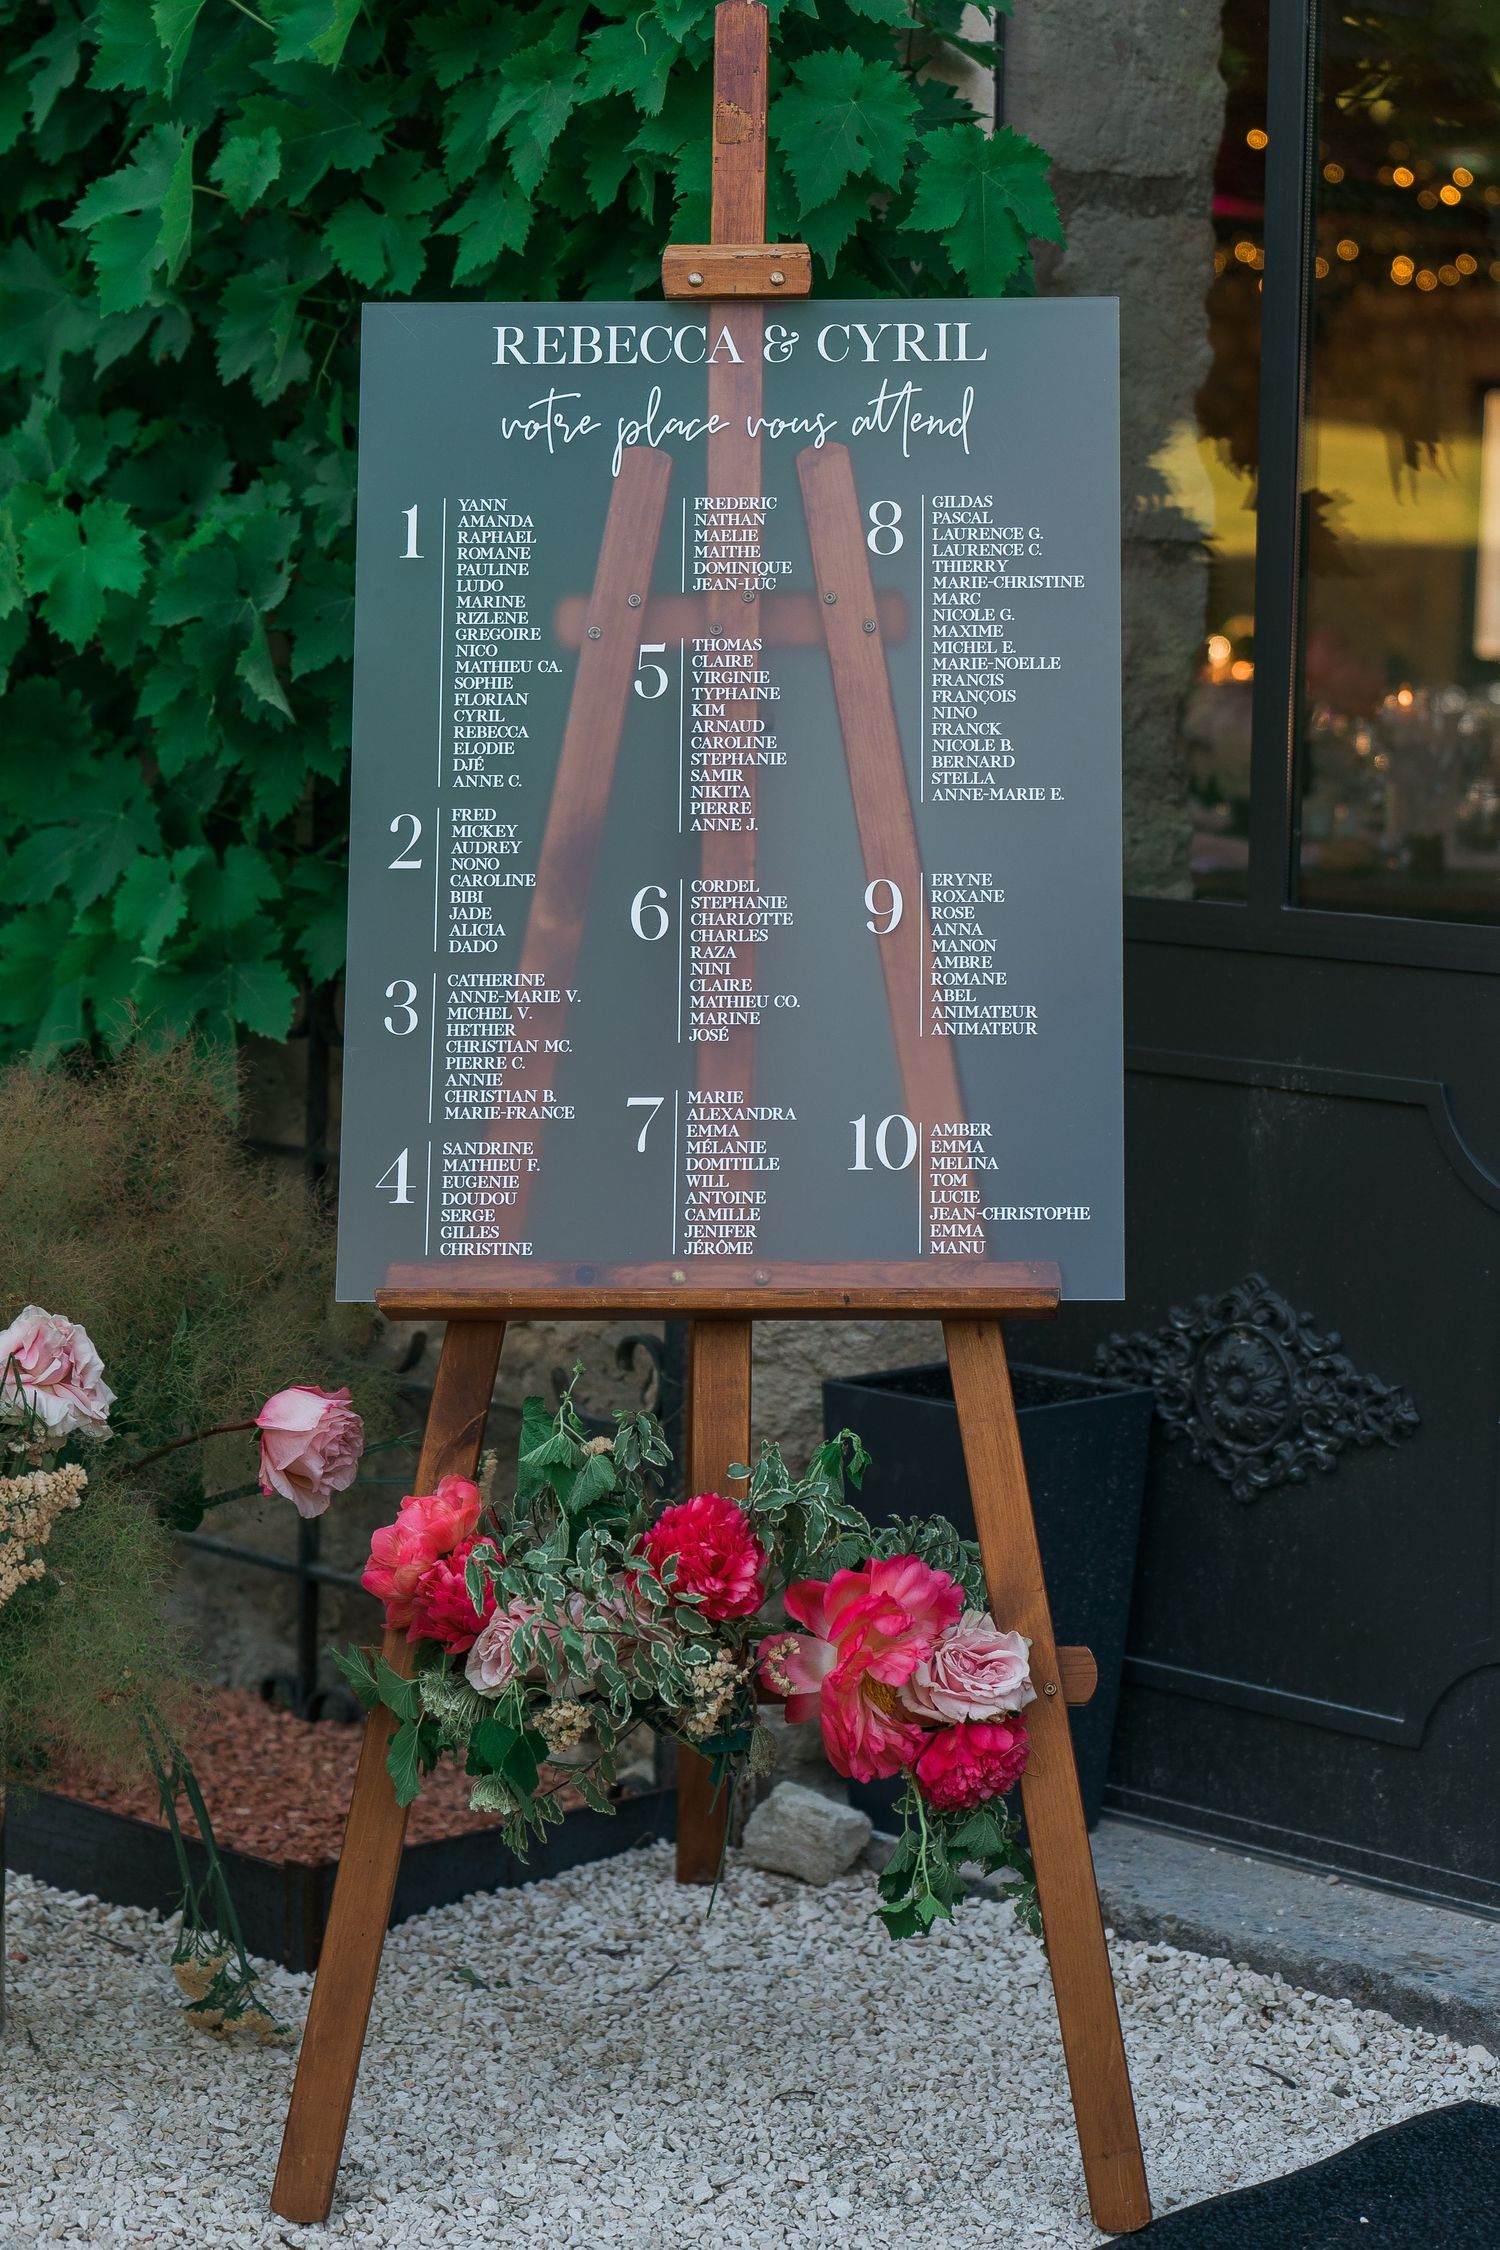 REBECCA & CYRIL
votre place vous attend
1
YANN
AMANDA
RAPHAEL
ROMANE
PAULINE
LUDO
MARINE
RIZLENE
GREGOIRE
NICO
MATHIEU CA.
SOPHIE
FLORIAN
CYRIL
REBECCA
ELODIE
DJÉ
ANNE C.
2
FRED
MICKEY
AUDREY
NONO
CAROLINE
BIBI
JADE
ALICIA
DADO
3
CATHERINE
ANNE-MARIE V.
MICHEL V.
HETHER
CHRISTIAN MC.
PIERRE C.
ANNIE
CHRISTIAN B.
MARIE-FRANCE
4
SANDRINE
MATHIEU F.
EUGENIE
DOUDOU
SERGE
GILLES
CHRISTINE
FREDERIC
NATHAN
MAELIE
MAITHE
DOMINIQUE
JEAN-LUC
5
THOMAS
CLAIRE
VIRGINIE
TYPHAINE
KIM
ARNAUD
CAROLINE
STEPHANIE
SAMIR
NIKITA
PIERRE
ANNE J.
6
CORDEL
STEPHANIE
CHARLOTTE
CHARLES
RAZA
NINI
CLAIRE
MATHIEU CO.
MARINE
JOSÉ
7
MARIE
ALEXANDRA
EMMA
MÉLANIE
DOMITILLE
WILL
ANTOINE
CAMILLE
JENIFER
JÉRÔME
8
GILDAS
PASCAL
LAURENCE G.
LAURENCE C.
THIERRY
MARIE-CHRISTINE
MARC
NICOLE G.
MAXIME
MICHEL E.
MARIE-NOELLE
FRANCIS
FRANÇOIS
NINO
FRANCK
NICOLE B.
BERNARD
STELLA
ANNE-MARIE E.
9
ERYNE
ROXANE
ROSE
ANNA
MANON
AMBRE
ROMANE
ABEL
ANIMATEUR
ANIMATEUR
10
AMBER
EMMA
MELINA
TOM
LUCIE
JEAN-CHRISTOPHE
EMMA
MANU